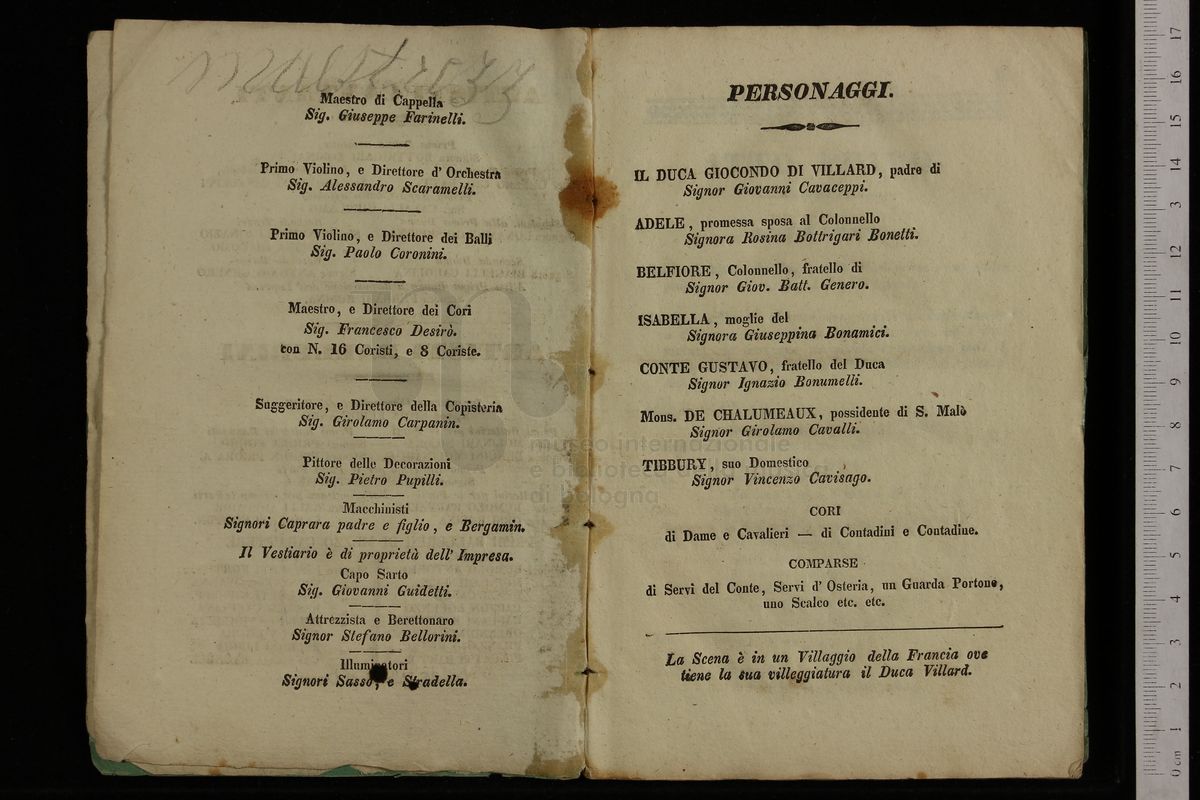 Maestro di Cappella
Sig. Giuseppe Farinelli.
Primo Violino, e Direttore d' Orchestra
Sig. Alessandro Scaramelli.
Primo Violino, e Direttore dei Balli
Sig. Paolo Coronini.
Maestro, e Direttore dei Cori
Sig. Francesco Desirò.
con N. 16 Coristi, e 8 Coriste.
Suggeritore, e Direttore della Copisteria
Sig. Girolamo Carpanin.
Pittore delle Decorazioni
Sig. Pietro Pupilli.
Macchinisti
Signori Caprara padre e figlio, e Bergamin.
Il Vestiario è di proprietà dell' Impresa.
Capo Sarto
Sig. Giovanni Guidetti.
Attrezzista e Berettonaro
Signor Stefano Bellorini.
Illuminatori
Signori Sasso, e Stradella.
PERSONAGGI.
IL DUCA GIOCONDO DI VILLARD, padre di
Signor Giovanni Cavaceppi.
ADELE, promessa sposa al Colonnello
Signora Rosina Bottrigari Bonetti.
BELFIORE, Colonnello, fratello di
Signor Giov. Batt. Genero.
ISABELLA, moglie del
Signora Giuseppina Bonamici.
CONTE GUSTAVO, fratello del Duca
Signor Ignazio Bonumelli.
Mons. DE CHALUMEAUX, possidente di S. Malò
Signor Girolamo Cavalli.
TIBBURY, suo Domestico
Signor Vincenzo Cavisago.
CORI
di Dame e Cavalieri — di Contadini e Contadine.
COMPARSE
di Servi del Conte, Servi d' Osteria, un Guarda Portone,
uno Scalco etc. etc.
La Scena è in un Villaggio della Francia ove
tiene la sua villeggiatura il Duca Villard.
museo internazionale
e biblioteca della musica
di bologna
0 cm 1 2 3 4 5 6 7 8 9 10 11 12 13 14 15 16 17